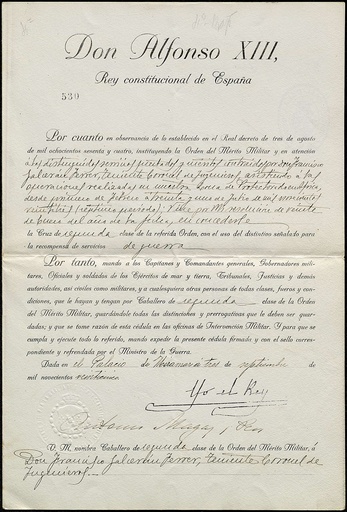 Don Alfonso XIII,
Rey constitucional de España
530
Por cuanto en observancia de lo establecido en el Real decreto de tres de agosto
de mil ochocientos sesenta y cuatro, instituyendo la Orden del Mérito Militar y en atención
á los distinguidos servicios prestados y méritos contraídos por Don Francisco
Galcerán Ferrer, Teniente Coronel de Ingenieros, asistiendo a las
operaciones realizadas en nuestra Zona de Protectorado en África,
desde primero de Febrero a treinta y uno de Julio de mil novecientos
veintitrés (séptimo período); Vine por Mi resolución de veinte
de de la fecha, en concederle
la Cruz de segunda clase de la referida Orden, con el uso del distintivo señalado para
la recompensa de servicios de guerra
Por tanto, mando a los Capitanes y Comandantes generales, Gobernadores mili-
tares, Oficiales y soldados de los Ejércitos de mar y tierra, Tribunales, Justicias y demás
autoridades, así civiles como militares, y a cualesquiera otras personas de todas clases, fueros y con-
diciones, que le hayan y tengan por Caballero de segunda clase de la Orden
del Mérito Militar, guardándole todas las distinciones y prerrogativas que le deben ser guar-
dadas; y que se tome razón de esta cédula en las oficinas de Intervención Militar. Y para que se
cumpla y ejecute todo lo referido, mando expedir la presente cédula firmada y con el sello corres-
pondiente y refrendada por el Ministro de la Guerra.
Dada en el Palacio de Miramar a tres de septiembre de
mil novecientos veinticinco
Yo el Rey
Antonio Magaz y Pers
V. M. nombra Caballero de segunda clase de la Orden del Mérito Militar, á
Don Francisco Galcerán Ferrer, Teniente Coronel de
Ingenieros.